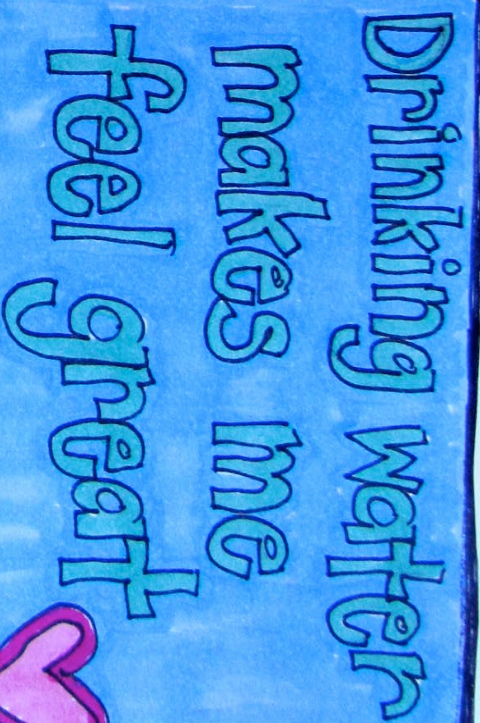 Drinking water
makes me
feel great